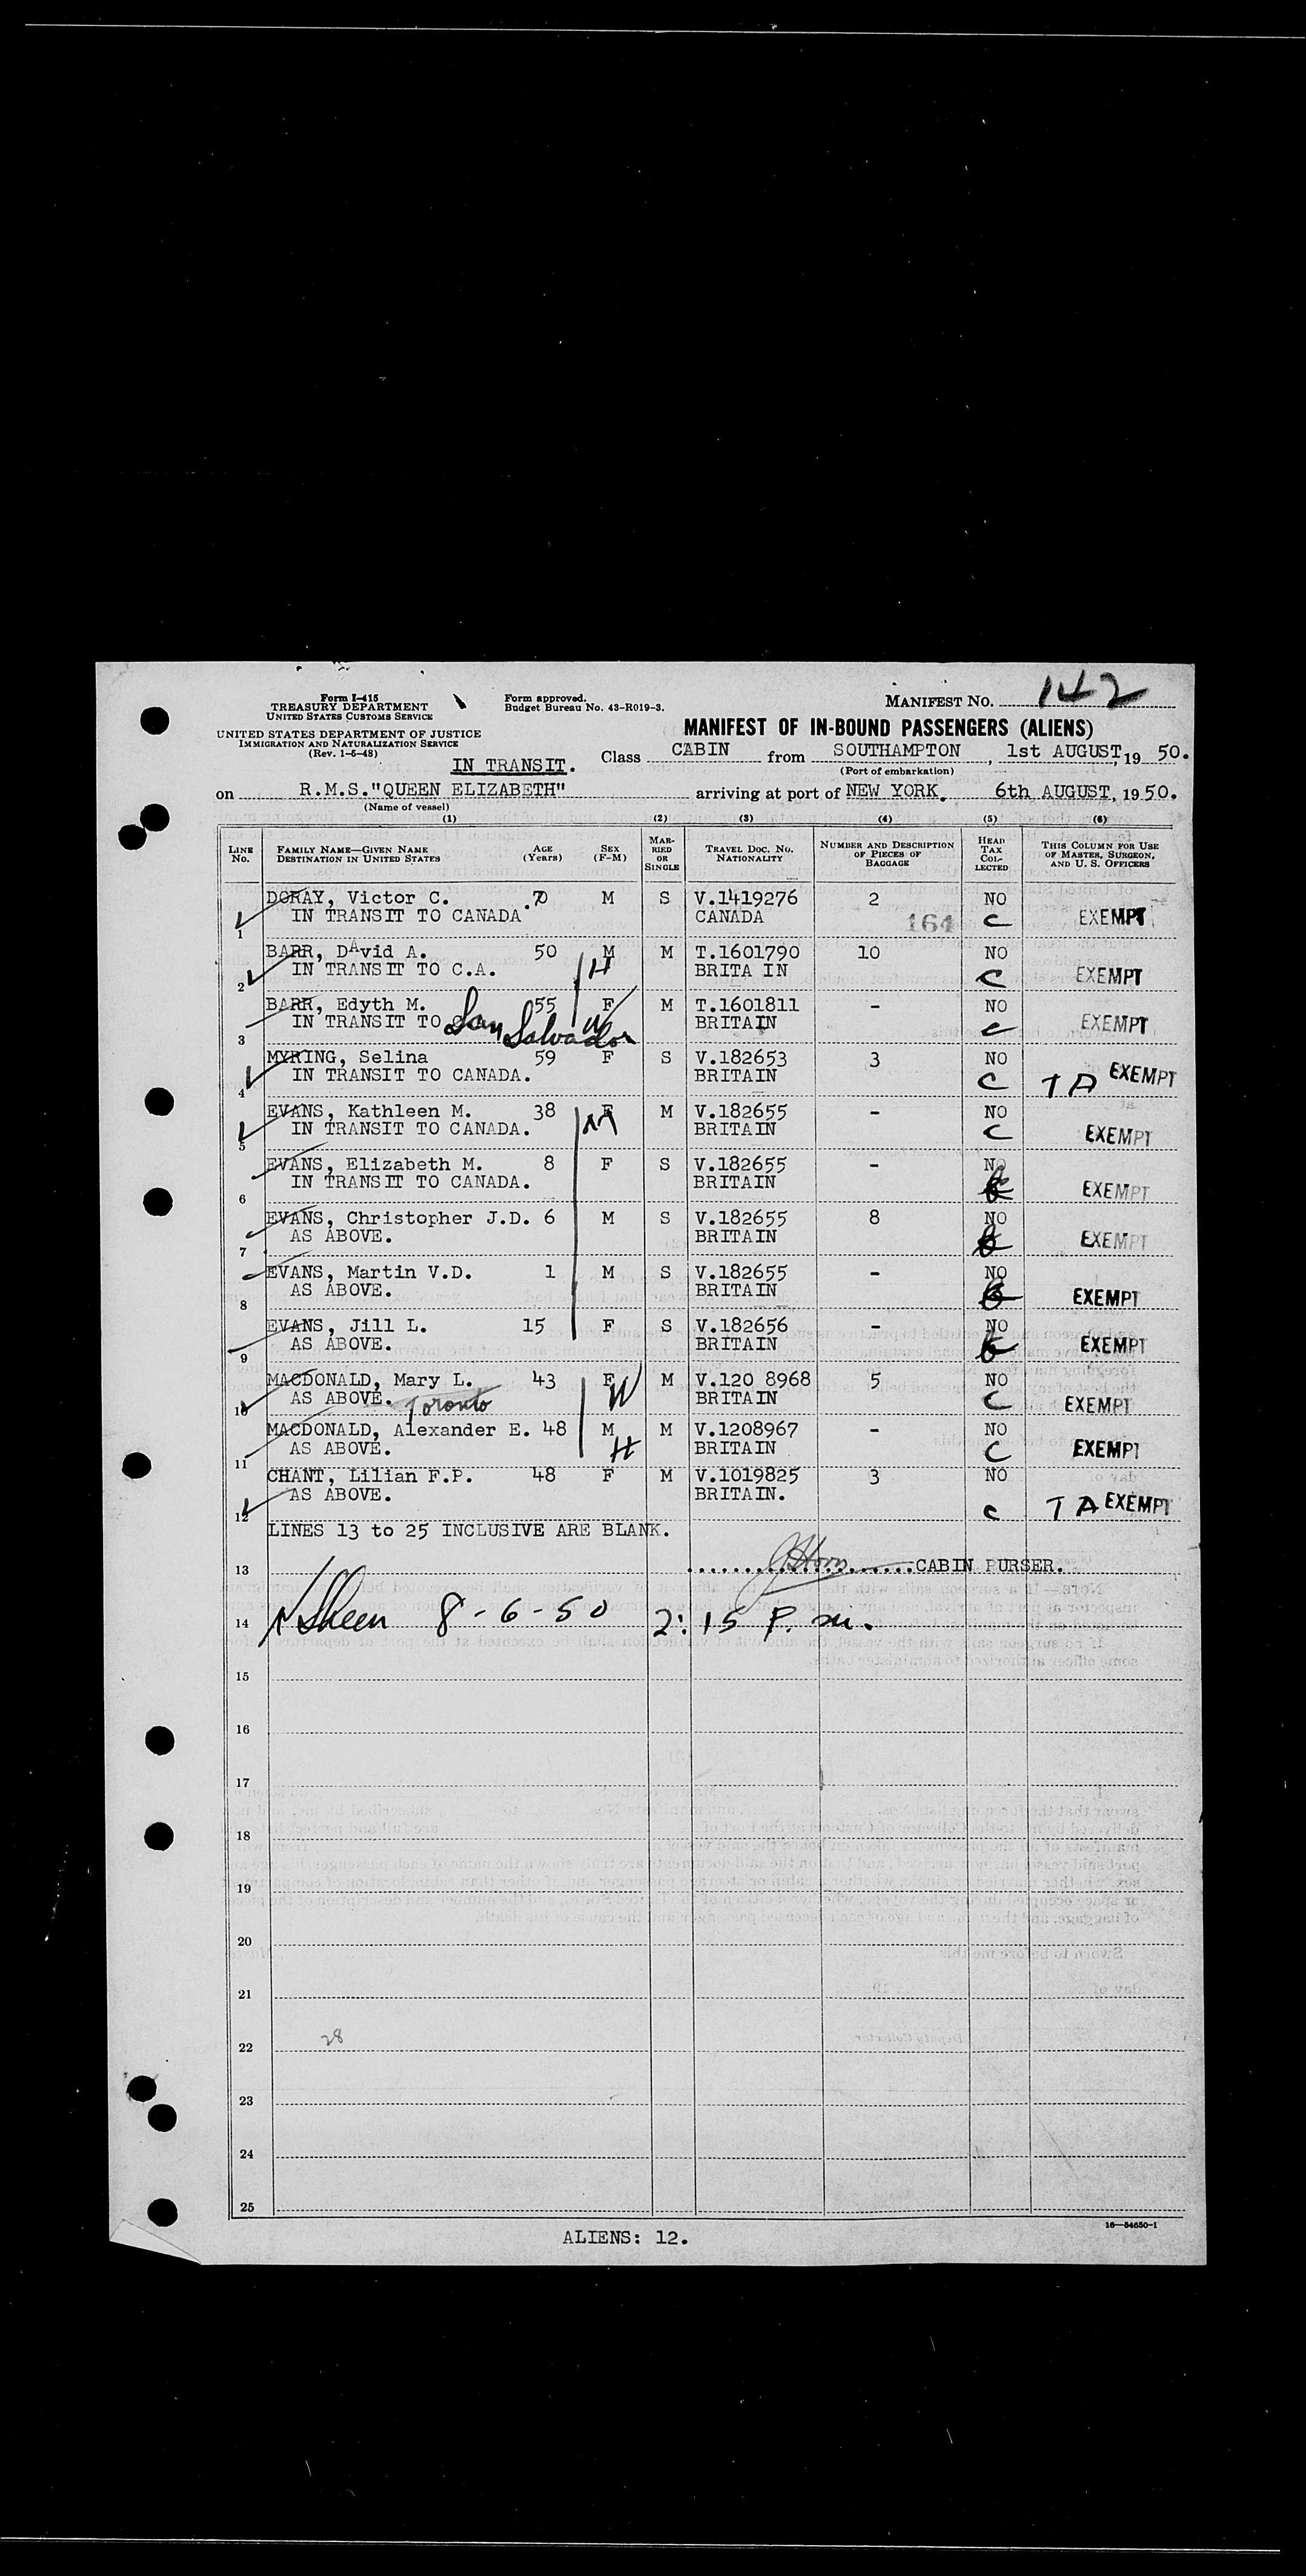 Form I-415
TREASURY DEPARTMENT
UNITED STATES CUSTOMS SERVICE
UNITED STATES DEPARTMENT OF JUSTICE
IMMIGRATION AND NATURALIZATION SERVICE
(Rev. 1-6-48)
Form approved.
Budget Bureau No. 43-R019-3.
MANIFEST NO. 142
MANIFEST OF IN-BOUND PASSENGERS (ALIENS)
IN TRANSIT.
Class CABIN from SOUTHAMPTON, 1st AUGUST, 1950.
(Port of embarkation)
on R.M.S."QUEEN ELIZABETH" arriving at port of NEW YORK. 6th AUGUST, 1950.
(Name of vessel)
(1) (2) (3) (4) (5) (6)
LINE No. FAMILY NAME—GIVEN NAME DESTINATION IN UNITED STATES AGE (Years) SEX (F-M) MARRIED OR SINGLE TRAVEL DOC. NO. NATIONALITY NUMBER AND DESCRIPTION OF PIECES OF BAGGAGE HEAD TAX COLLECTED THIS COLUMN FOR USE OF MASTER, SURGEON, AND U. S. OFFICERS
DORAY, Victor C. M S V.1419276 2 NO
1 IN TRANSIT TO CANADA. CANADA 164 C EXEMPT
BARR, DAvid A. 50 M M T.1601790 10 NO
2 IN TRANSIT TO C.A. H BRITA IN C EXEMPT
BARR, Edyth M. 55 F M T.1601811 - NO
3 IN TRANSIT TO San Salvador W BRITAIN C EXEMPT
MYRING, Selina 59 F S V.182653 3 NO
4 IN TRANSIT TO CANADA. BRITAIN C T A EXEMPT
EVANS, Kathleen M. 38 F M V.182655 - NO
5 IN TRANSIT TO CANADA. M BRITAIN C EXEMPT
EVANS, Elizabeth M. 8 F S V.182655 - NO
6 IN TRANSIT TO CANADA. BRITAIN EXEMPT
EVANS, Christopher J.D. 6 M S V.182655 8 NO
7 AS ABOVE. BRITAIN EXEMPT
EVANS, Martin V.D. 1 M S V.182655 - NO
8 AS ABOVE. BRITAIN EXEMPT
EVANS, Jill L. 15 F S V.182656 - NO
9 AS ABOVE. BRITAIN EXEMPT
MACDONALD, Mary L. 43 F M V.120 8968 5 NO
10 AS ABOVE. Toronto W BRITAIN C EXEMPT
MACDONALD, Alexander E. 48 M M V.1208967 - NO
11 AS ABOVE. H BRITAIN C EXEMPT
CHANT, Lilian F.P. 48 F M V.1019825 3 NO
12 AS ABOVE. BRITAIN. C T A EXEMPT
LINES 13 to 25 INCLUSIVE ARE BLANK.
13 CABIN PURSER.
14 8-6-50 2:15 P.m.
15
16
17
18
19
20
21
22 28
23
24
25
16—54650-1
ALIENS: 12.